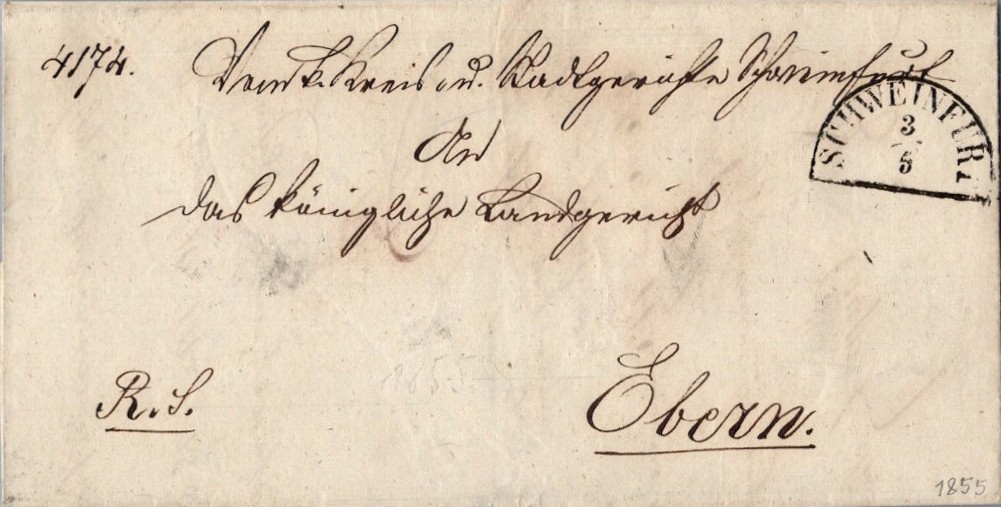 4174.
Vom k. Kreis u. Stadtgerichte Schweinfurt
SCHWEINFURT
3
5
An
das königliche Landgericht
1855
R. S.
Ebern.
1855